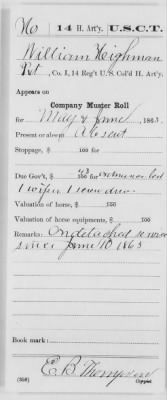 H | 14 H. Art'y. | U.S.C.T.
William Heighman
Pvt, Co. I, 14 Reg't U. S. Col'd H. Art'y.
Appears on
Company Muster Roll
for May & June, 1865.
Present or absent Absent
Stoppage, $ 100 for
Due Gov't, $ 100 for
1 wiper 1 screw driver
Valuation of horse, $ 100
Valuation of horse equipments, $ 100
Remarks: On detached service
since June 10 1865
Book mark:
E. B. Thompson
(358) Copyist.